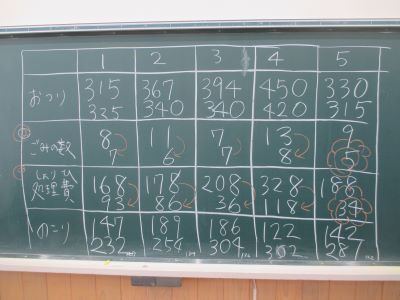 1 2 3 4 5
おつり 315 367 394 450 330
325 340 340 420 315
ごみの数 8 11 7 13 9
7 6 7 8 5
しょりひ
処理費 168 178 208 328 188
93 86 36 118 34
のこり 147 189 186 122 142
232 254 304 302 287